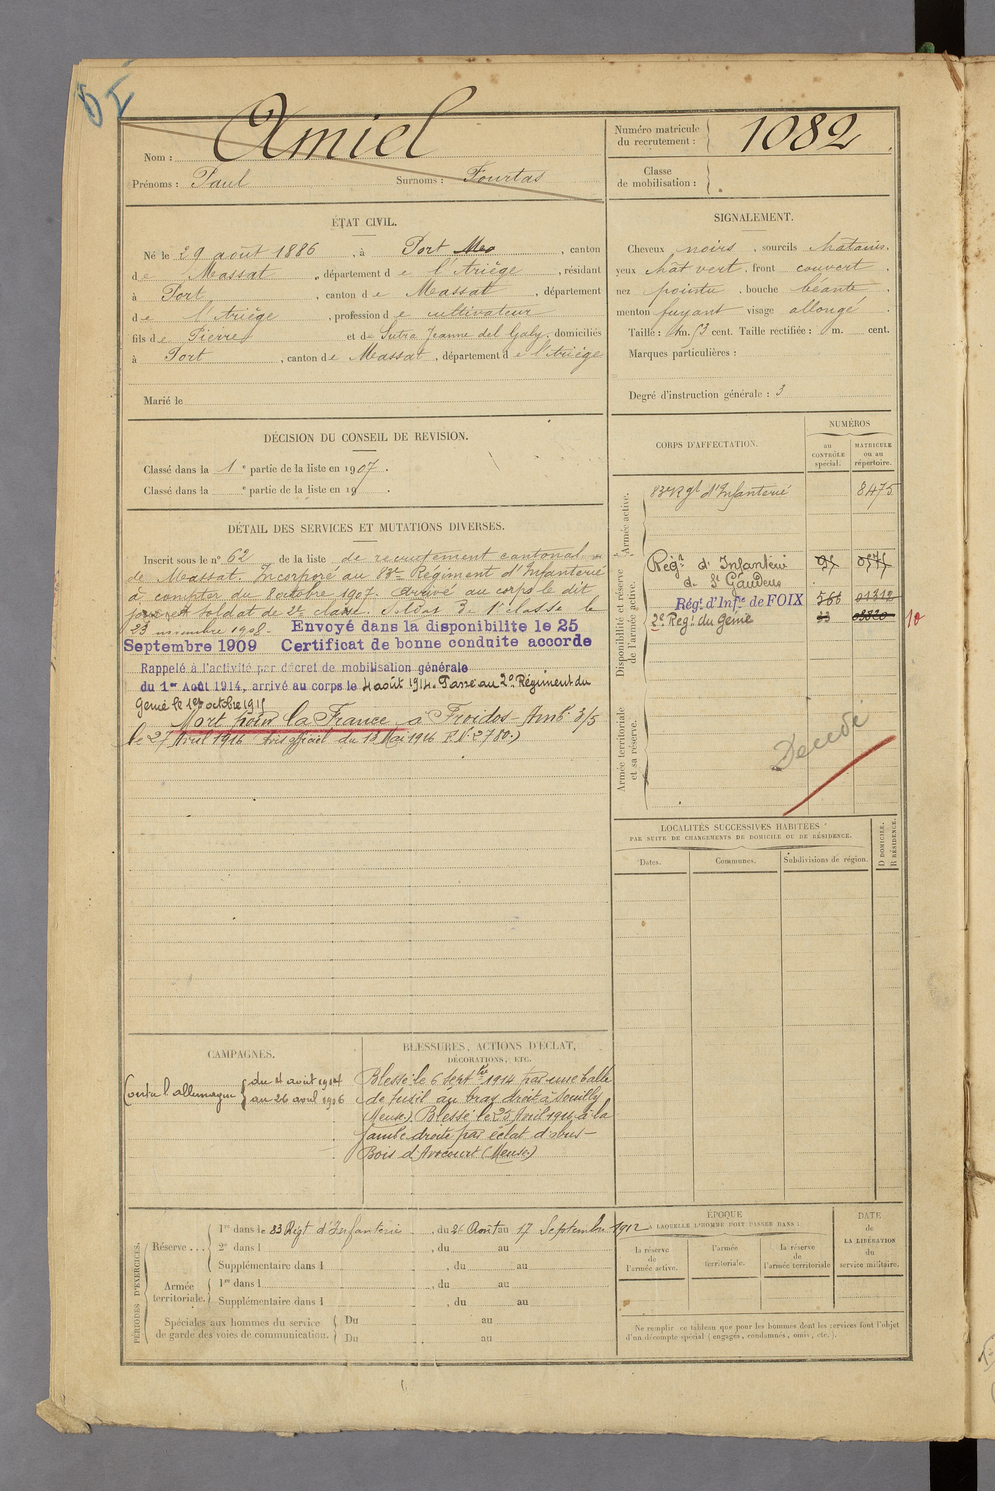 Nom : Amiel
Prénoms : Paul Surnoms : Fourtas
Numéro matricule du recrutement : 1082
Classe de mobilisation :
ÉTAT CIVIL.
Né le 29 août 1886, à Port, canton
de Massat, département de l'Ariège, résidant
à Port, canton de Massat, département
de l'Ariège, profession de cultivateur
fils de Pierre et de Sutra Jeanne del Galy, domiciliés
à Port, canton de Massat, département de l'Ariège
Marié le
SIGNALEMENT.
Cheveux noirs, sourcils chatains.
yeux chat vert, front couvert,
nez pointu, bouche béante,
menton fuyant visage allongé
Taille : 1m. 53 cent. Taille rectifiée : m. cent.
Marques particulières :
Degré d'instruction générale : 3
DÉCISION DU CONSEIL DE REVISION.
Classé dans la 1e partie de la liste en 1907.
Classé dans la e partie de la liste en 19 .
DÉTAIL DES SERVICES ET MUTATIONS DIVERSES.
Inscrit sous le n° 62 de la liste de recrutement cantonal
de Massat. Incorporé au 83e Régiment d'Infanterie
à compter du 8 octobre 1907. Arrivé au corps le dit
jour et soldat de 2e classe. Soldat de 1e classe le
23 novembre 1908. Envoyé dans la disponibilite le 25
Septembre 1909 Certificat de bonne conduite accorde
Rappelé à l'activité par décret de mobilisation générale
du 1er Août 1914, arrivé au corps le 4 août 1914. Passé au 2e Régiment du
Génie le 1er octobre 1915
Mort pour la France à Froidos - Amb. 3/5
le 27 Avril 1916 Avis officiel du 18 Mai 1916 F. N. 2780.)
CORPS D'AFFECTATION.
NUMÉROS
au CONTRÔLE spécial.
MATRICULE ou au répertoire.
Armée active.
83e Rgt d'Infanterie 8475
Disponibilité et réserve de l'armée active.
Régt d'Infanterie
de St Gaudens
Régt. d'Infie de FOIX
2e Regt. du Génie
10
Armée territoriale et sa réserve.
Décédé
LOCALITÉS SUCCESSIVES HABITÉES
PAR SUITE DE CHANGEMENTS DE DOMICILE OU DE RÉSIDENCE.
Dates. Communes. Subdivisions de région. D DOMICILE. R RÉSIDENCE.
CAMPAGNES.
Contre l'allemagne { du 4 août 1914
au 26 avril 1916
BLESSURES, ACTIONS D'ÉCLAT,
DÉCORATIONS, ETC.
Blessé le 6 septbre 1914 par une balle
de fusil au bras droit à Souilly
(Meuse). Blessé le 25 Avril 1916 à la
jambe droite par éclat d'obus -
Bois d'Avocourt (Meuse)
PÉRIODES D'EXERCICES.
Réserve...
1re dans le 83 Régt d'Infanterie, du 26 Août au 17 Septembre 1912
2e dans l , du au
Supplémentaire dans l , du au
Armée territoriale.
1re dans l , du au
Supplémentaire dans l , du au
Spéciales aux hommes du service
de garde des voies de communication.
Du au
Du au
ÉPOQUE
À LAQUELLE L'HOMME DOIT PASSER DANS :
la réserve de l'armée active.
l'armée territoriale.
la réserve de l'armée territoriale
DATE
de
LA LIBÉRATION
du
service militaire.
Ne remplir ce tableau que pour les hommes dont les services font l'objet
d'un décompte spécial (engagés, condamnés, omis, etc.).